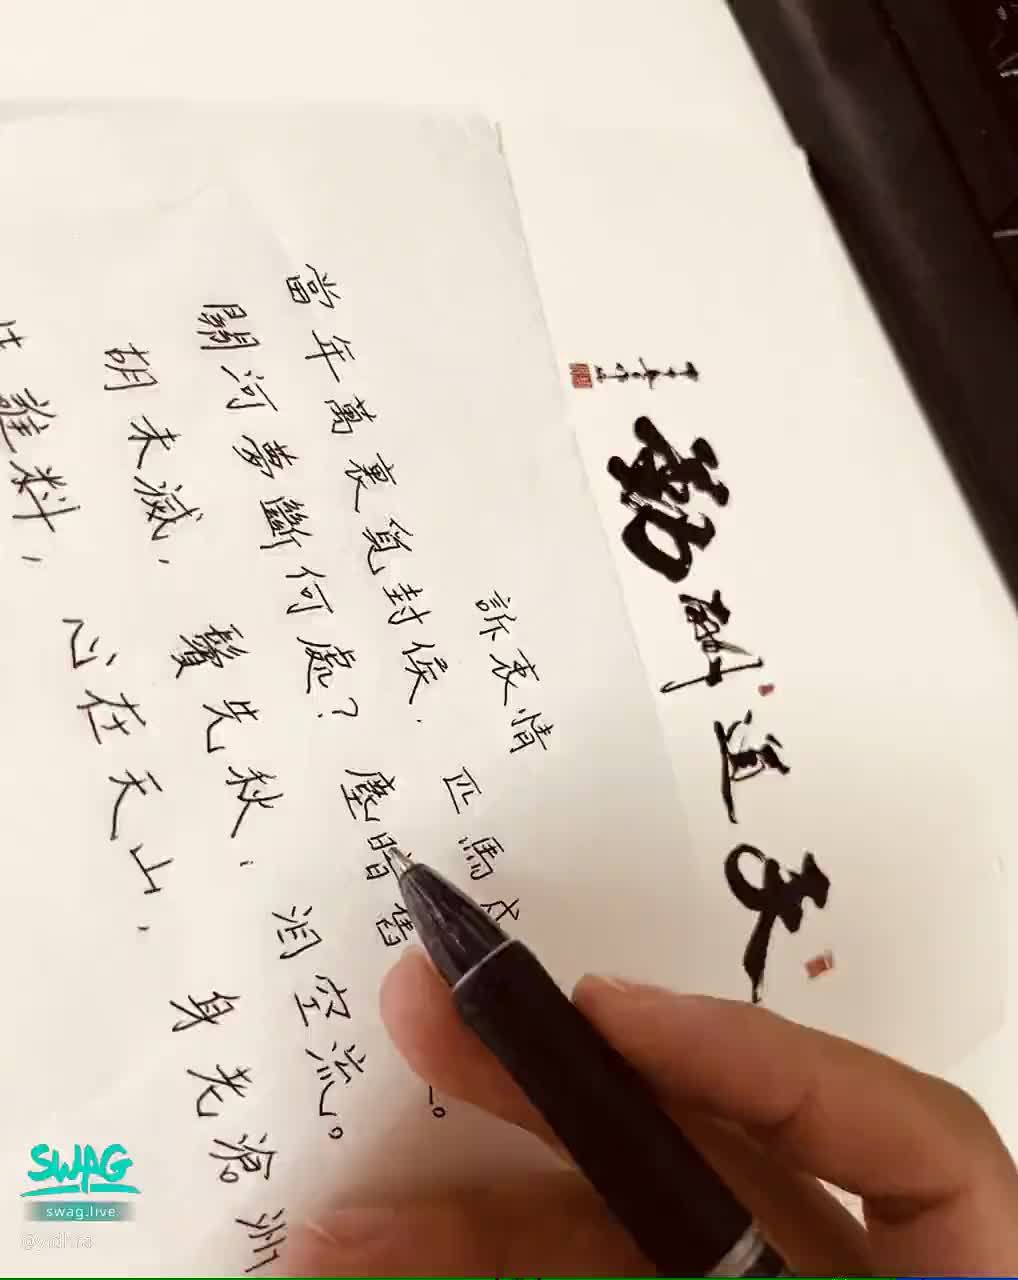 天道酬勤
訴衷情
當年萬裏覓封侯. 匹馬戍
關河夢斷何處? 塵暗舊
胡未滅, 鬢先秋. 泪空流。
誰料, 心在天山, 身老滄。洲
SWAG
swag.live